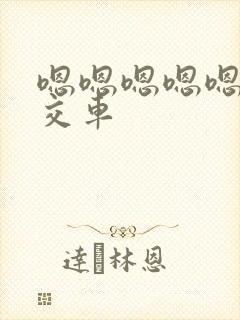 嗯嗯嗯嗯嗯
交车
達林恩